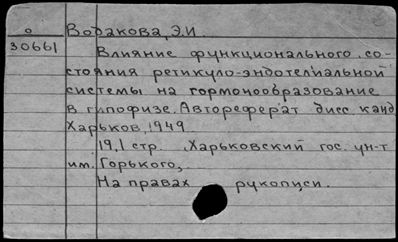 о Водакова, Э.И.
30661 Влияние функционального со-
стояния ретикуло-эндотелиальной
системы на гормонообразование
в гипофизе. Автореферат дисс канд
Харьков, 1949.
19,1 стр. Харьковский гос. ун-т
им. Горького,
На правах рукописи.